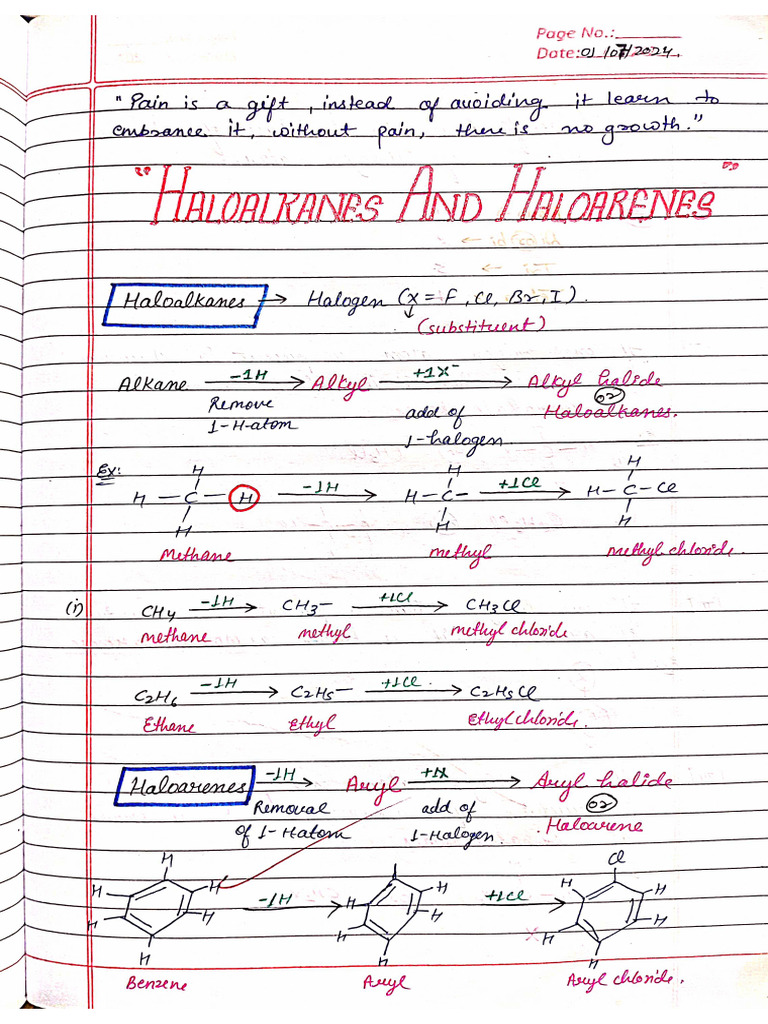 Page No.:
Date: 01/07/2024.
"Pain is a gift, instead of avoiding it learn to
embrance it, without pain, there is no growth."
"HALOALKANES AND HALOARENES"
Haloalkanes → Halogen (X = F, Cl, Br, I).
(substituent)
Alkane -1H → Alkyl +1X⁻ → Alkyl halide
Remove add of or
1-H-atom 1-halogen Haloalkanes.
Ex:
H H H
H-C-H -1H → H-C- +1Cl → H-C-Cl
H H H
Methane methyl methyl chloride.
(i) CH4 -1H → CH3- +1Cl → CH3Cl
methane methyl methyl chloride
C2H6 -1H → C2H5- +1Cl. → C2H5Cl
Ethane Ethyl Ethyl chloride.
Haloarenes -1H → Aryl +1X → Aryl halide
Removal add of or
of 1-H atom 1-Halogen. Haloarene
H Cl
H H H H H
-1H → +1Cl →
H H H H H H
H H H
Benzene Aryl Aryl chloride.